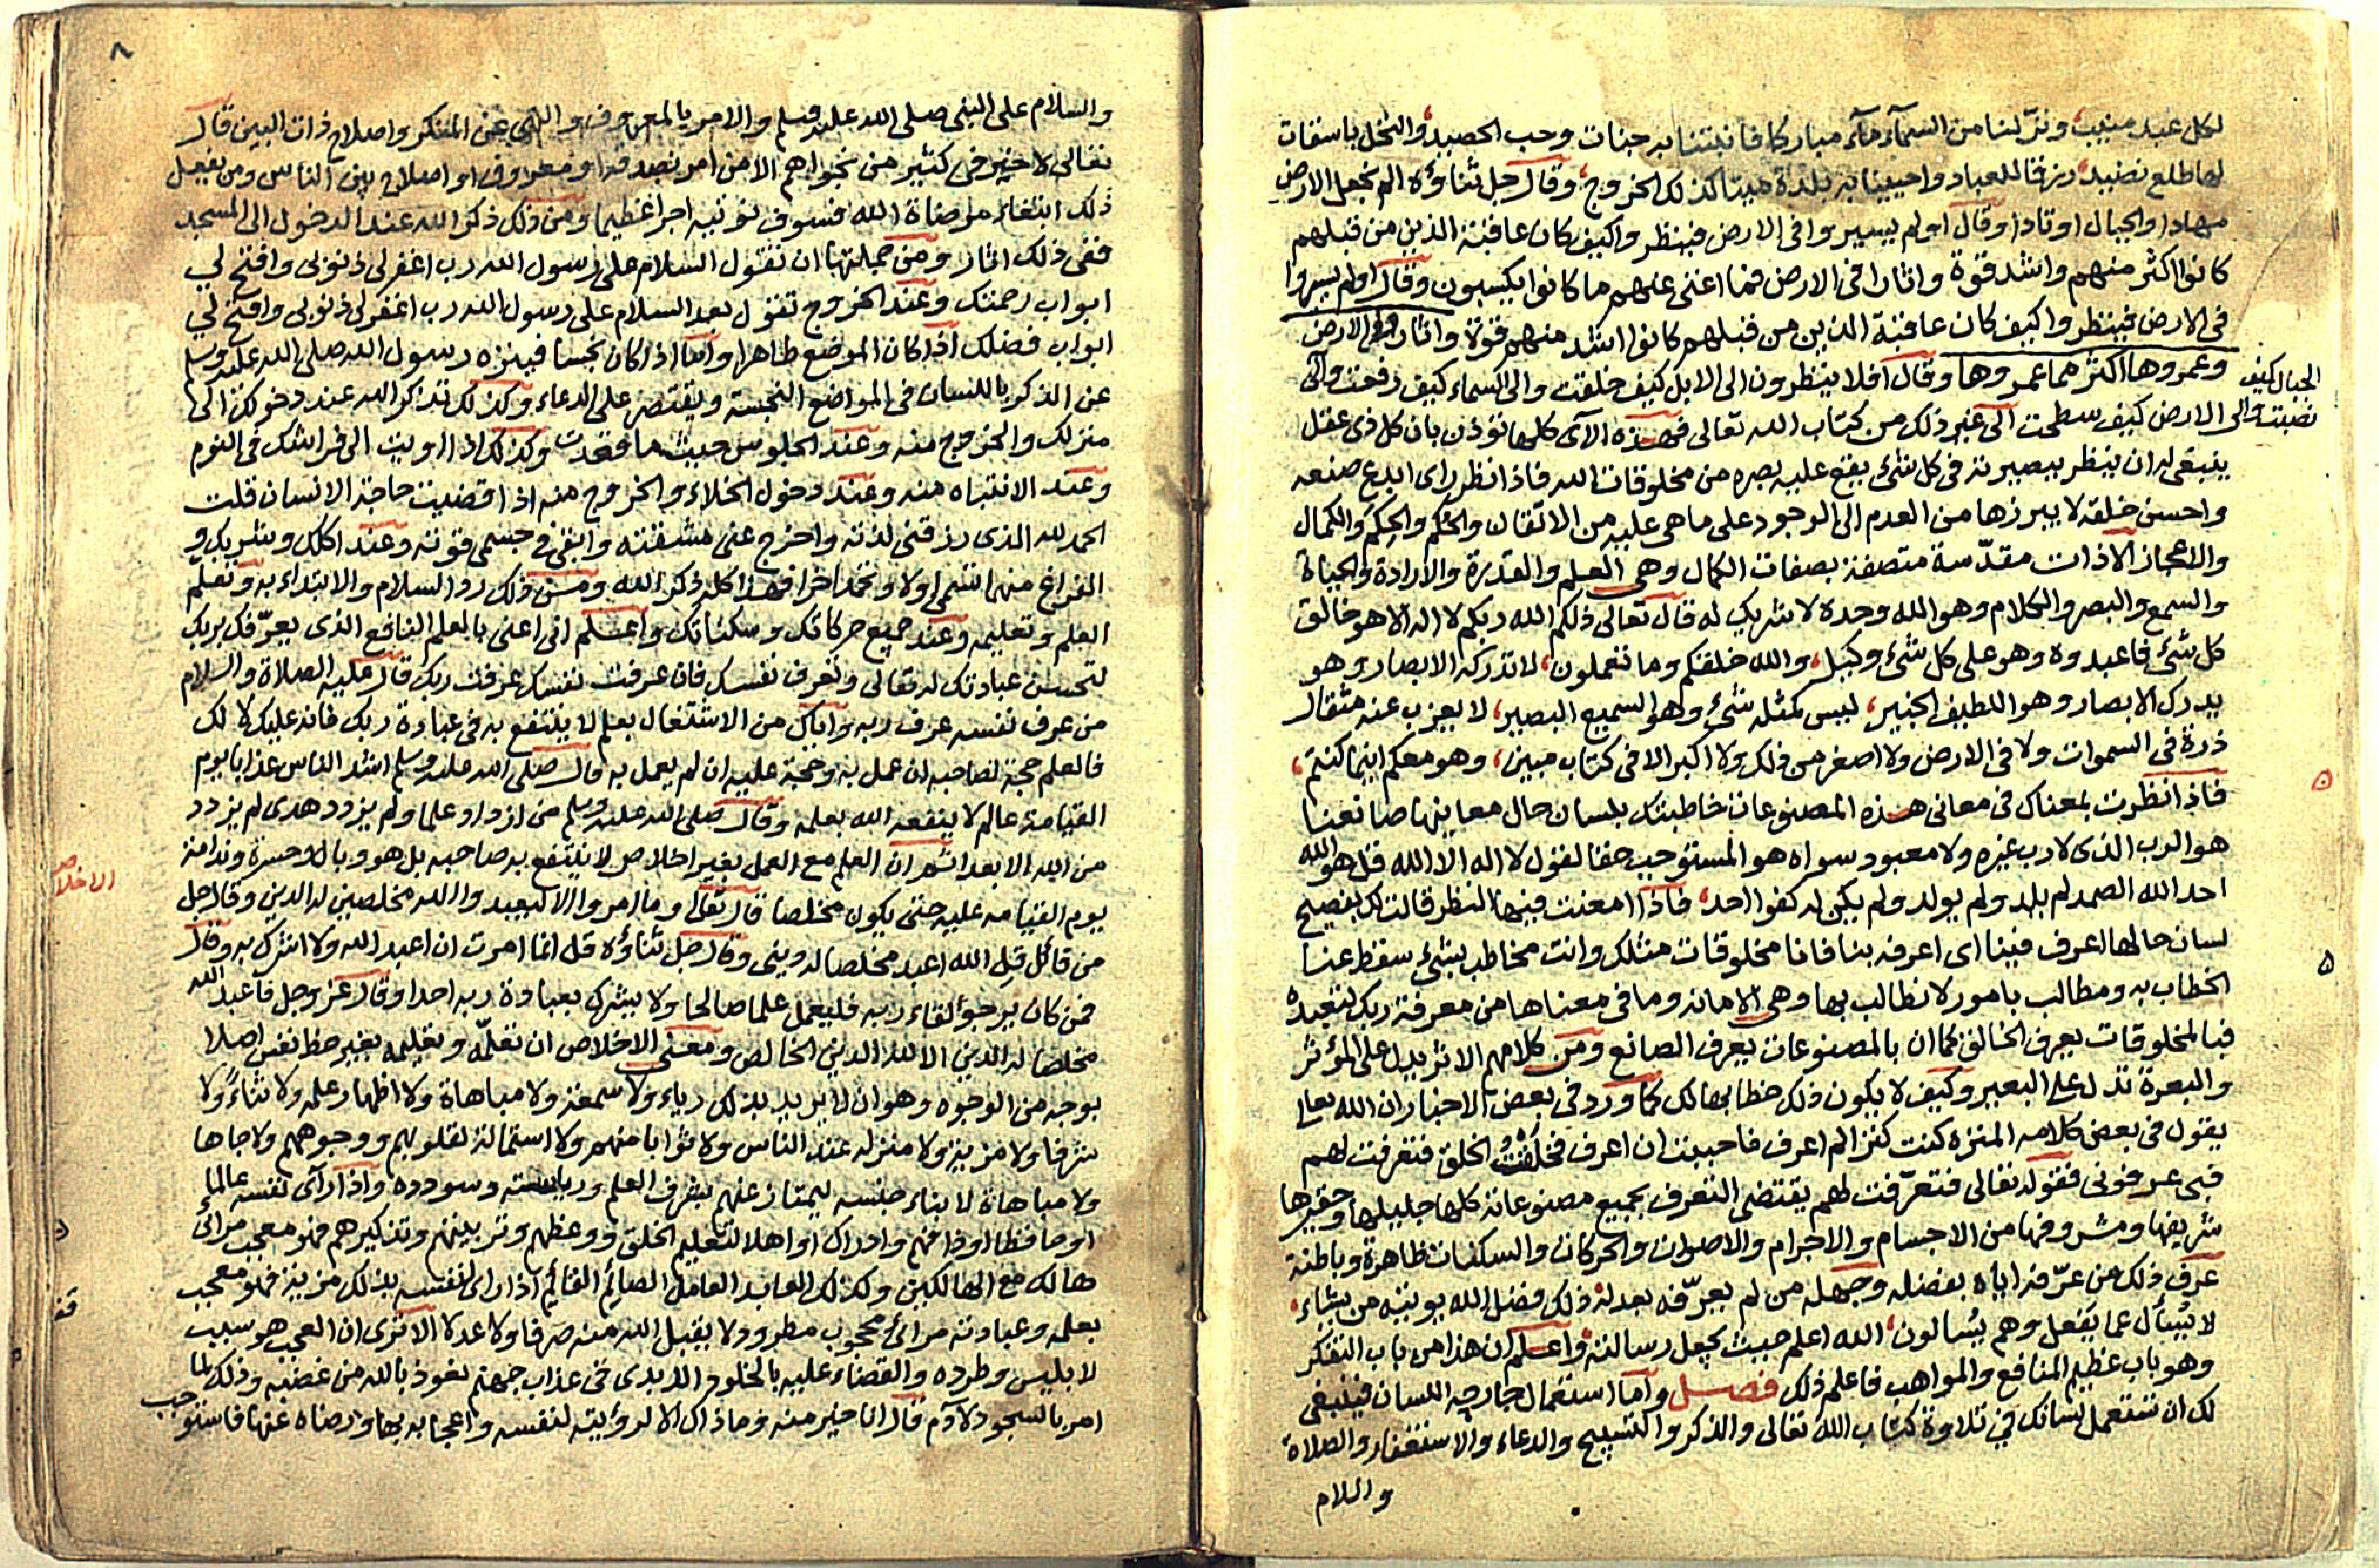 لكل عبد منيب، ونزّلنا من السمآء مآء مباركا فانبتنا به جنات وحب الحصيد، والنخل باسقات
لها طلع نضيد، رزقا للعباد واحيينا به بلدة ميتا كذلك الخروج، وقال جل ثناؤه الم نجعل الارض
مهادا والجبال اوتادا وقال اولم يسيروا في الارض فينظروا كيف كان عاقبة الذين من قبلهم
كانوا اكثر منهم واشد قوة واثارا في الارض فما اغنى عنهم ما كانوا يكسبون وقال اولم يسيروا
في الارض فينظروا كيف كان عاقبة الذين من قبلهم كانوا اشد منهم قوة واثاروا الارض
وعمروها اكثر مما عمروها وقال افلا ينظرون الى الابل كيف خلقت والى السماء كيف رفعت والى
الجبال كيف
نصبت والى الارض كيف سطحت الى غير ذلك من كتاب الله تعالى فهذه الآى كلها تؤذن بان كل ذى عقل
ينبغى له ان ينظر ببصيرته في كل شئ يقع عليه بصره من مخلوقات الله فاذا نظر راى ابدع صنعه
واحسن خلقه لا يبرزها من العدم الى الوجود على ما هى عليه من الاتقان والحُكم والحِكم والكمال
والاعجاز الا ذات مقدّسة متصفة بصفات الكمال وهى العلم والقدرة والارادة والحياة
والسمع والبصر والكلام وهو الله وحده لا شريك له قال تعالى ذلكم الله ربكم لا اله الا هو خالق
كل شئ فاعبدوه وهو على كل شئ وكيل، والله خلقكم وما تعملون، لا تدركه الابصار وهو
يدرك الابصار وهو اللطيف الخبير، ليس كمثله شئ وهو السميع البصير، لا يعزب عنه مثقال
ذرة في السموات ولا في الارض ولا اصغر من ذلك ولا اكبر الا في كتاب مبين، وهو معكم اينما كنتم،
فاذا نظرت بمعناك في معانى هذه المصنوعات خاطبتك بلسان حال معاينها صانعنا
هو الرب الذى لا رب غيره ولا معبود سواه هو المستوجب حقا لقول لا اله الا الله قل هو الله
احد الله الصمد لم يلد ولم يولد ولم يكن له كفوا احد، فاذا امعنت فيها النظر قالت لك بفصيح
لسان حالها اعرف فينا اى اعرفه بنا فانا مخلوقات مثلك وانت مخاطب بشئ سقط عنا
الخطاب به ومطالب بامور لا نطالب بها وهى الامانة وما في معناها من معرفة ربك لتعبده
فبالمخلوقات يعرف الخالق كما ان بالمصنوعات يعرف الصانع ومن كلامهم الاثر يدل على المؤثر
والبعرة تدل على البعير وكيف لا يكون ذلك خطابها لك كما ورد في بعض الاخبار ان الله تعالى
يقول في بعض كلامه المنزه كنت كنزا لم اعرف فاحببت ان اعرف فخلقت الخلق فتعرفت لهم
فبى عرفونى فقوله تعالى فتعرّفت لهم يقتضى التعرف بجميع مصنوعاته كلها جليلها وحقيرها
شريفها ومشروفها من الاجسام والاجرام والاصوات والحركات والسكنات ظاهرة وباطنة
عرف ذلك من عرّفه اياه بفضله وجهله من لم يعرّفه بعدله ذلك فضل الله يوتيه من يشاء،
لا يسأل عما يفعل وهم يسألون، الله اعلم حيث يجعل رسالته، واعلم ان هذا من باب التفكر
وهو باب عظيم المنافع والمواهب فاعلم ذلك فصل واما استعمال جارحة اللسان فينبغى
لك ان تستعمل لسانك في تلاوة كتاب الله تعالى والذكر والتسبيح والدعاء والاستغفار والصلاة
والسلام
٨
والسلام على النبى صلى الله عليه وسلم والامر بالمعروف والنهى عن المنكر واصلاح ذات البين قال
تعالى لا خير في كثير من نجواهم الا من امر بصدقة او معروف او اصلاح بين الناس ومن يفعل
ذلك ابتغاء مرضاة الله فسوف نؤتيه اجرا عظيما ومن ذلك ذكر الله عند الدخول الى المسجد
ففى ذلك اثار ومن جملتها ان تقول السلام على رسول الله رب اغفر لى ذنوبى وافتح لي
ابواب رحمتك وعند الخروج تقول بعد السلام على رسول الله رب اغفر لى ذنوبى وافتح لي
ابواب فضلك اذا كان الموضع طاهرا واما اذا كان نجسا فينزه رسول الله صلى الله عليه وسلم
عن الذكر باللسان في المواضع النجسة ويقتصر على الدعاء وكذلك تذكر الله عند دخولك الى
منزلك والخروج منه وعند الجلوس حيث ما قعدت وكذلك اذا اويت الى فراشك في النوم
وعند الانتباه منه وعند دخول الخلاء والخروج منه اذا قضيت حاجة الانسان قلت
الحمد لله الذى رزقنى لذته واخرج عنى مشقته وابقى في جسمى قوته وعند اكلك وشربك و
الفراغ منهما تسمى اولا وتحمد اخرا فهذا كله ذكر الله ومن ذلك رد السلام والابتداء به وتعلّم
العلم وتعليمه وعند جميع حركاتك وسكناتك واعلم انى اعنى بالعلم النافع الذى يعرّفك بربك
لتحسن عبادتك له تعالى وتعرف نفسك فان عرفت نفسك عرفت ربك قال عليه الصلاة والسلام
من عرف نفسه عرف ربه واياك من الاشتغال بعلم لا ينتفع به في عبادة ربك فانه عليك لا لك
فالعلم حجة لصاحبه ان عمل به وحجة عليه ان لم يعمل به قال صلى الله عليه وسلم اشد الناس عذابا يوم
القيامة عالم لا ينفعه الله بعلمه وقال صلى الله عليه وسلم من ازداد علما ولم يزدد هدى لم يزدد
من الله الا بعدا ثم ان العلم مع العمل بغير اخلاص لا ينتفع به صاحبه بل هو وبال وحسرة وندامة
الاخلاص
يوم القيامة عليه حتى يكون مخلصا قال تعالى وما امروا الا ليعبدوا الله مخلصين له الدين وقال جل
من قائل قل الله اعبد مخلصا له دينى وقال جل ثناؤه قل انما امرت ان اعبد الله ولا اشرك به وقال
فمن كان يرجو لقاء ربه فليعمل عملا صالحا ولا يشرك بعبادة ربه احدا وقال عز وجل فاعبد الله
مخلصا له الدين الا لله الدين الخالص ومعنى الاخلاص ان تعلّمه وتعليمه بغير حظ نفس اصلا
بوجه من الوجوه وهو ان لا يريد بذلك رياء ولا سمعة ولا مباهاة ولا اظهار علمه ولا ثناءً ولا
شرفا ولا مزية ولا منزله عند الناس ولا ثوابا منهم ولا استمالة لقلوبهم ووجوههم ولا جاها
ولا مباهاة لابناء جنسه ليمتاز عنهم بشرف العلم ورياسته وسودده واذا رآى نفسه عالما
او حافظا او ذا فهم وادراك او اهلا لتعليم الخلق ووعظهم وتربيتهم وتذكيرهم فهو معجب مرائى
هالك مع الهالكين وكذلك العابد العامل الصائم القائم اذا راى لنفسه بذلك مزية فهو معجب
بعلمه وعبادته مرائى محجوب مطرود لا يقبل الله منه صرفا ولا عدلا الا ترى ان العجب هو سبب
لابليس وطرده والقضاء عليه بالخلود الابدى في عذاب جهنم نعوذ بالله من غضبه وذلك لما
امر بالسجود لآدم قال انا خير منه وما ذاك الا لرؤيته لنفسه واعجابه بها ورضاه عنها فاستوجب